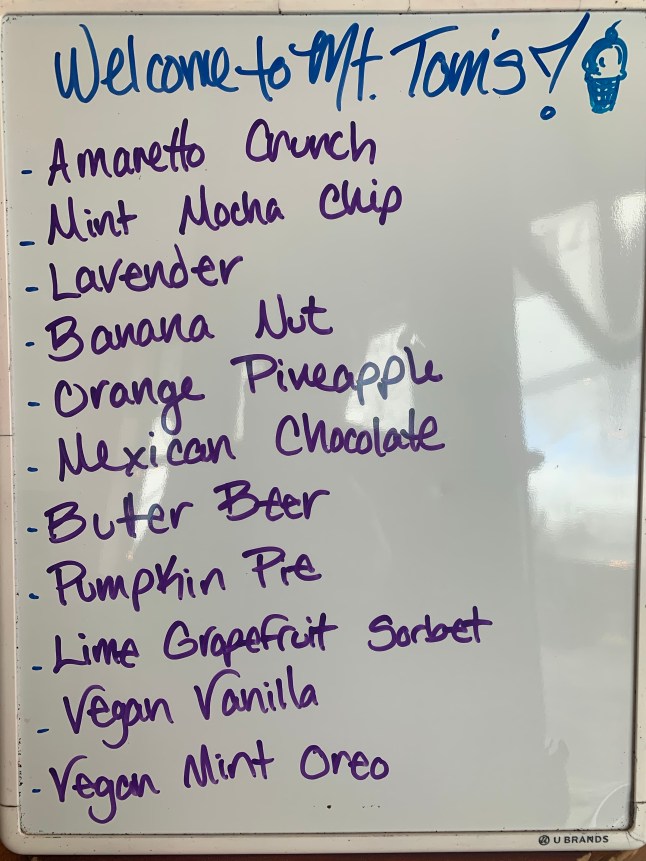 Welcome to Mt. Tom's!
- Amaretto Crunch
- Mint Mocha Chip
- Lavender
- Banana Nut
- Orange Pineapple
- Mexican Chocolate
- Butter Beer
- Pumpkin Pie
- Lime Grapefruit Sorbet
- Vegan Vanilla
- Vegan Mint Oreo
U BRANDS